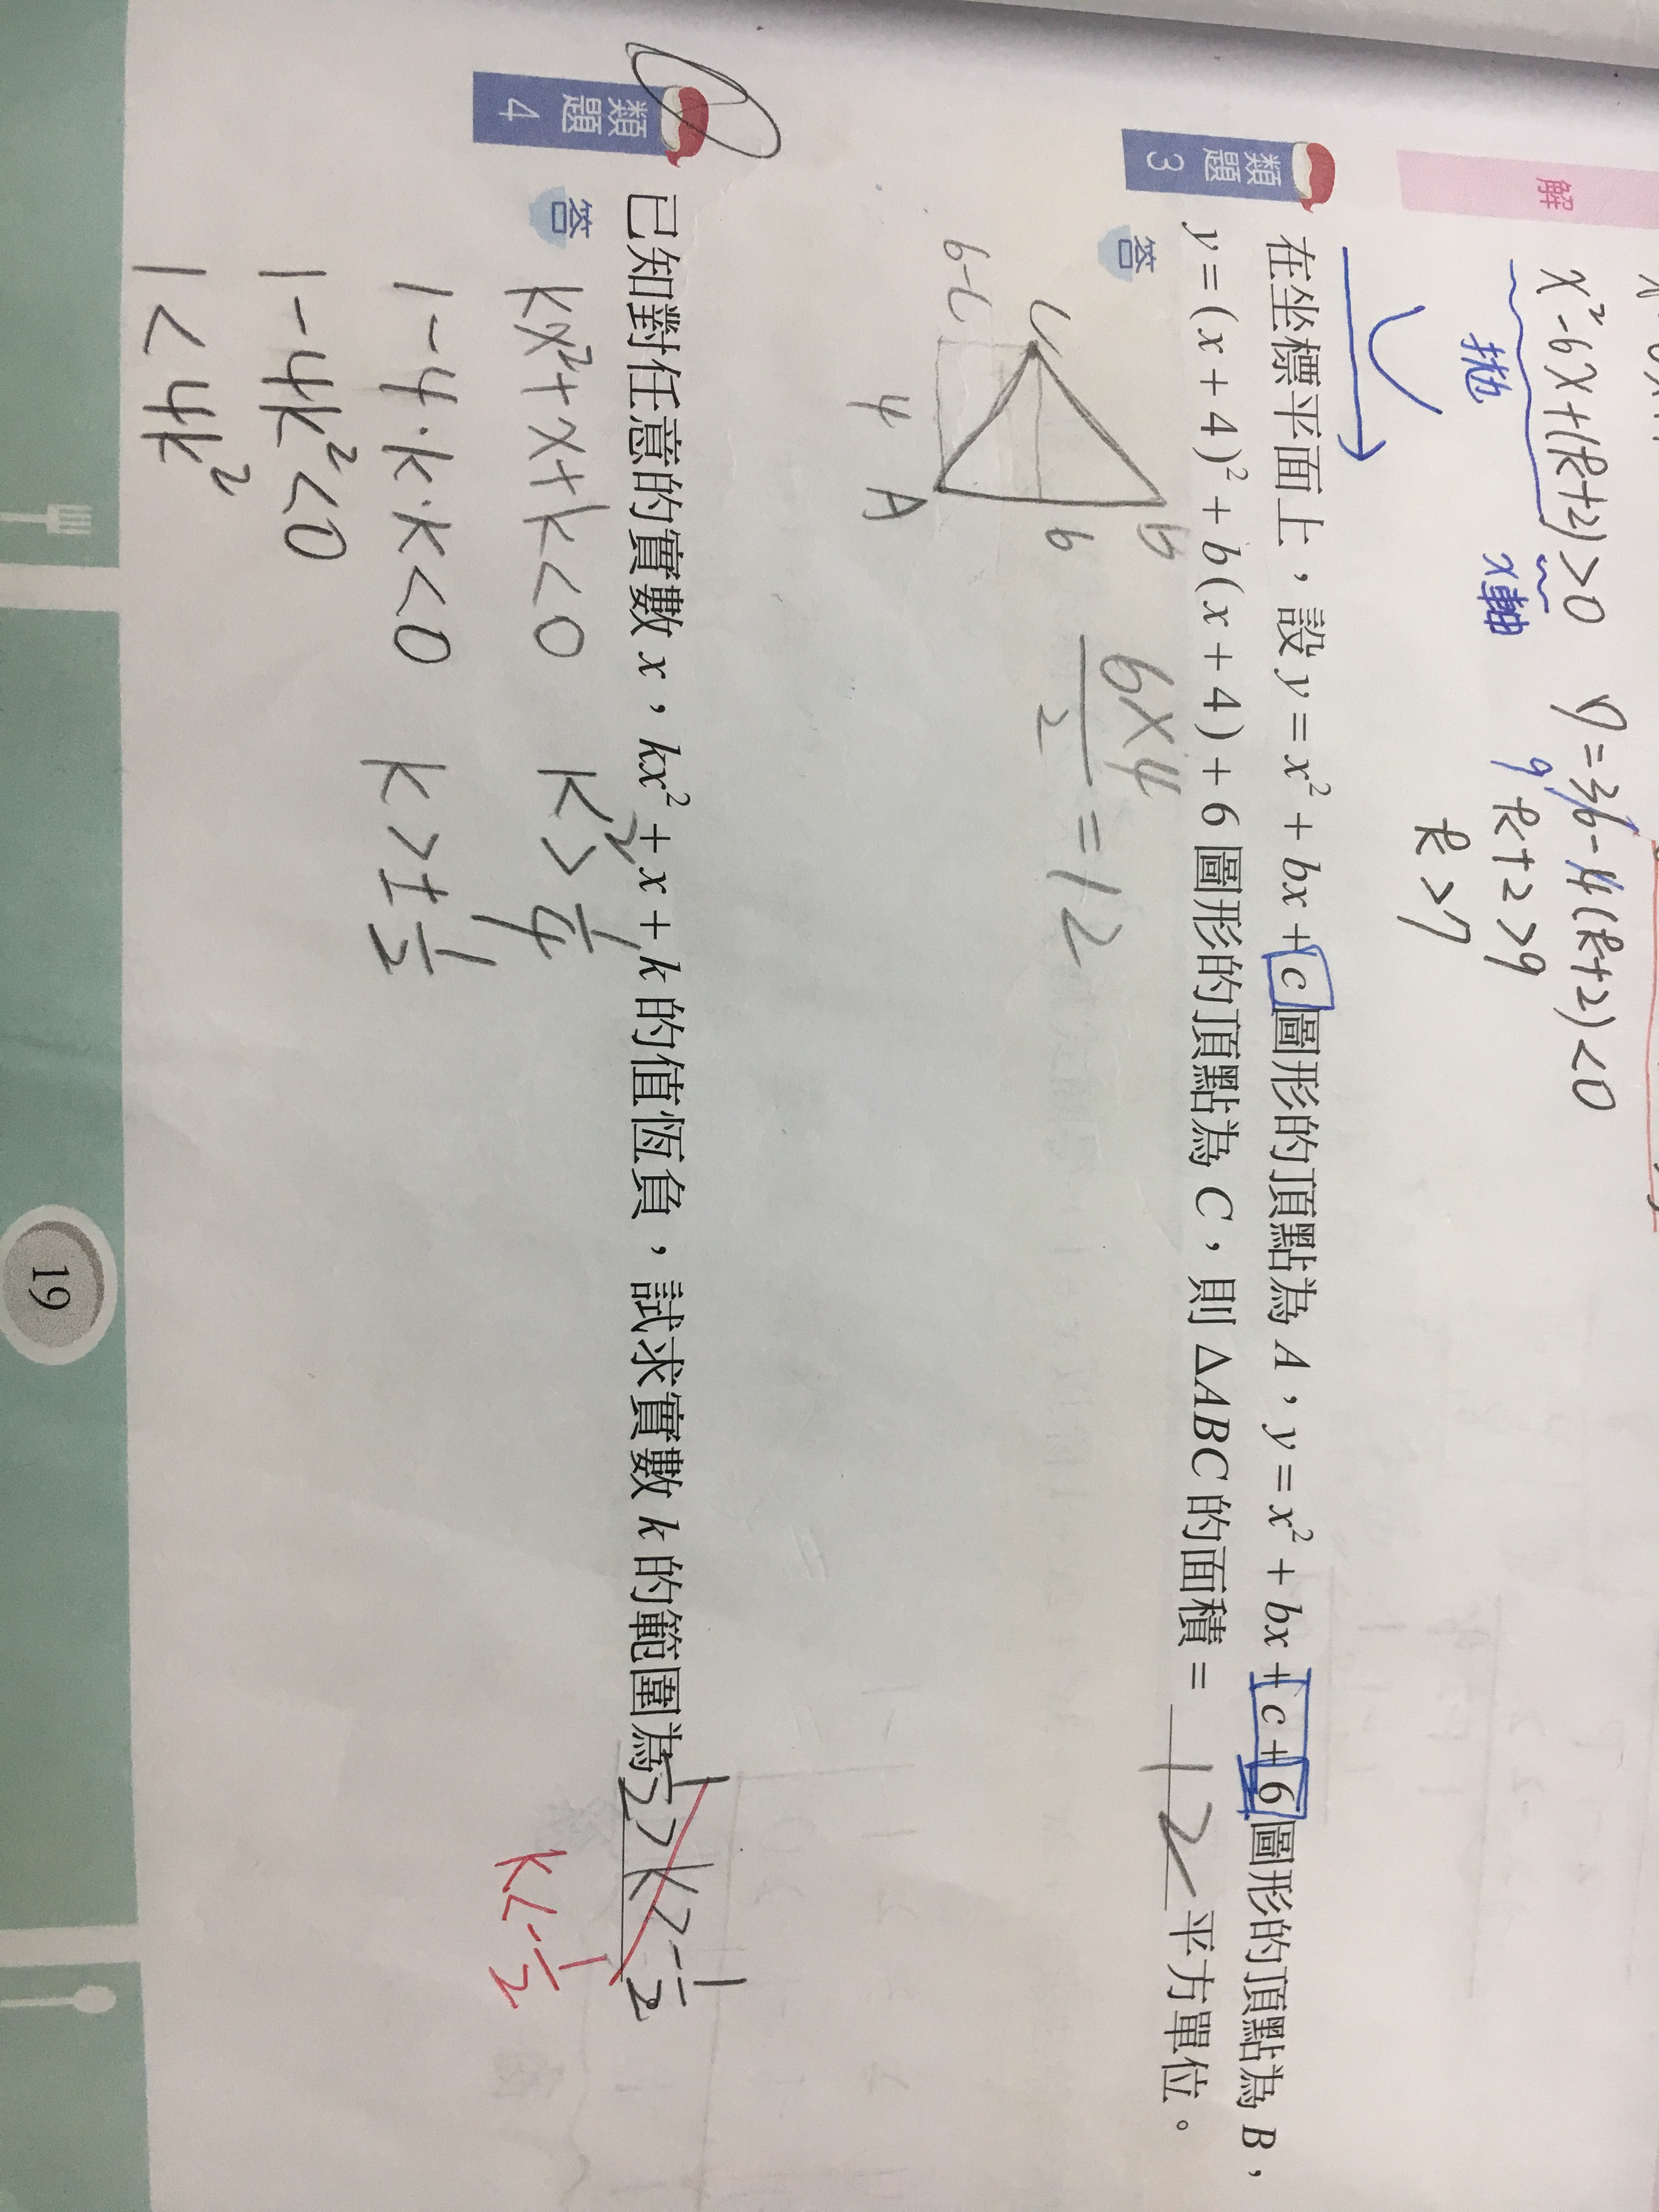 解
x²-6x+(k+2)>0
拋
x軸
D=36-4(k+2)<0
9
k+2>9
k>7
類題 3
在坐標平面上，設 y=x²+bx+c 圖形的頂點為 A，y=x²+bx+c+6 圖形的頂點為 B，
y=(x+4)²+b(x+4)+6 圖形的頂點為 C，則 △ABC 的面積= 12 平方單位。
答
C
B
6
6-c
4
A
6×4/2=12
類題 4
已知對任意的實數 x，kx²+x+k 的值恆負，試求實數 k 的範圍為 1/2>k>-1/2
k<-1/2
答
kx²+x+k<0
1-4·k·k<0
1-4k²<0
1<4k²
k²>1/4
k>±1/2
19